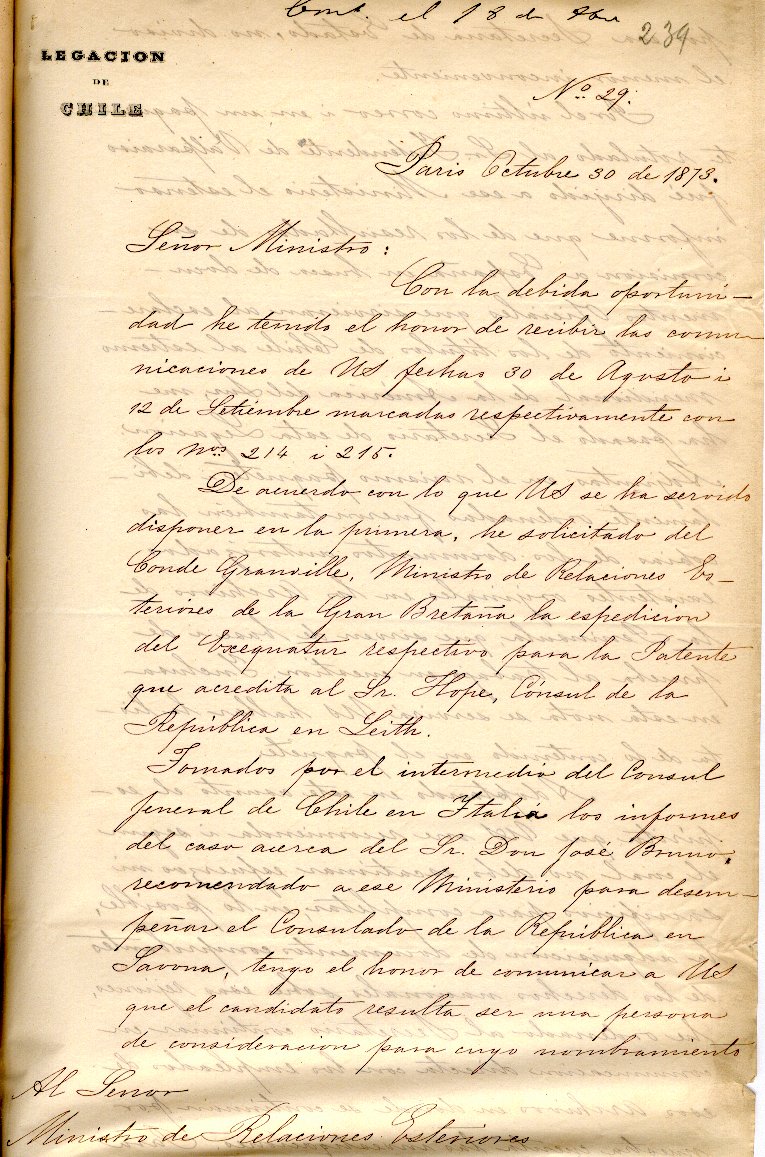 Cont. el 18 de
239
LEGACION
DE
CHILE
Nº 29.
Paris Octubre 30 de 1873.
Señor Ministro:
Con la debida oportuni-
dad he tenido el honor de recibir las comu-
nicaciones de US fechas 30 de Agosto i
12 de Setiembre marcadas respectivamente con
los nos. 214 i 215.
De acuerdo con lo que US se ha servido
disponer en la primera, he solicitado del
Conde Granville, Ministro de Relaciones Es-
teriores de la Gran Bretaña la espedicion
del Exequatur respectivo para la Patente
que acredita al Sr. Hope, Cónsul de la
República en Leith.
Tomados por el intermedio del Consul
Jeneral de Chile en Italia los informes
del caso acerca del Sr. Don José Bruno,
recomendado a ese Ministerio para desem-
peñar el Consulado de la República en
Savona, tengo el honor de comunicar a US
que el candidato resulta ser una persona
de consideracion para cuyo nombramiento
Al Señor
Ministro de Relaciones Esteriores